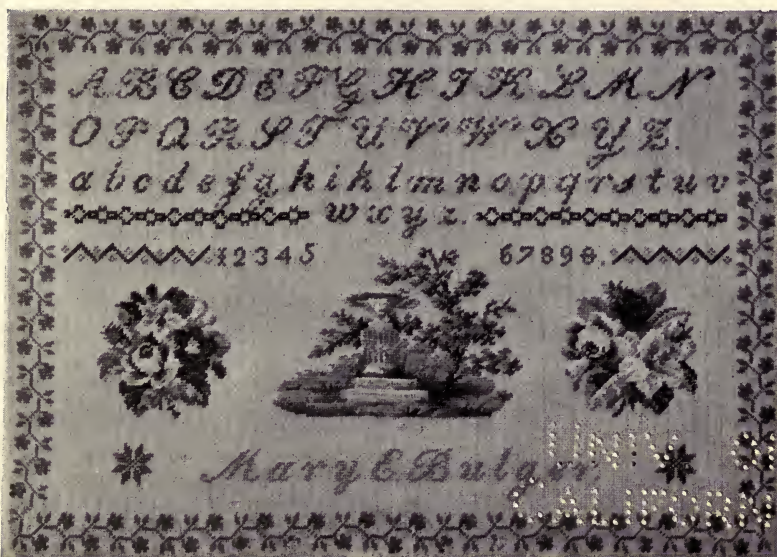 A B C D E F G H I K L M N
O P Q R S T U V W X Y Z.
a b c d e f g h i k l m n o p q r s t u v
w x y z.
12345 67890.
Mary E Bulger
UNIV. OF
CALIFORN